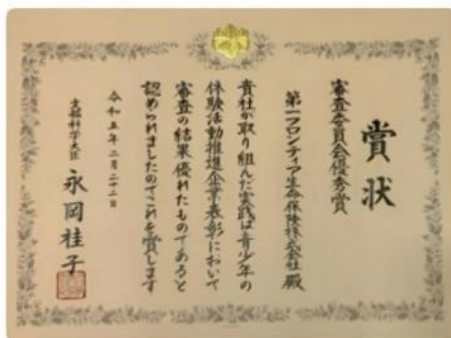 賞状
審査委員会優秀賞
第一フロンティア生命保険株式会社 殿
貴社が取り組んだ実践は青少年の
体験活動推進企業表彰において
審査の結果優れたものであると
認められましたのでこれを賞します
令和五年二月二十二日
文部科学大臣 永岡桂子